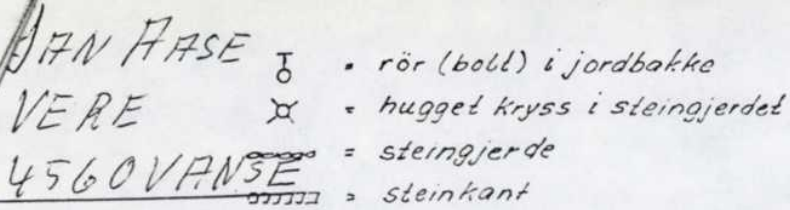 JAN AASE
VERE
4560 VANSE
= rör (bolt) i jordbakke
= hugget kryss i steingjerdet
= steingjerde
= steinkant